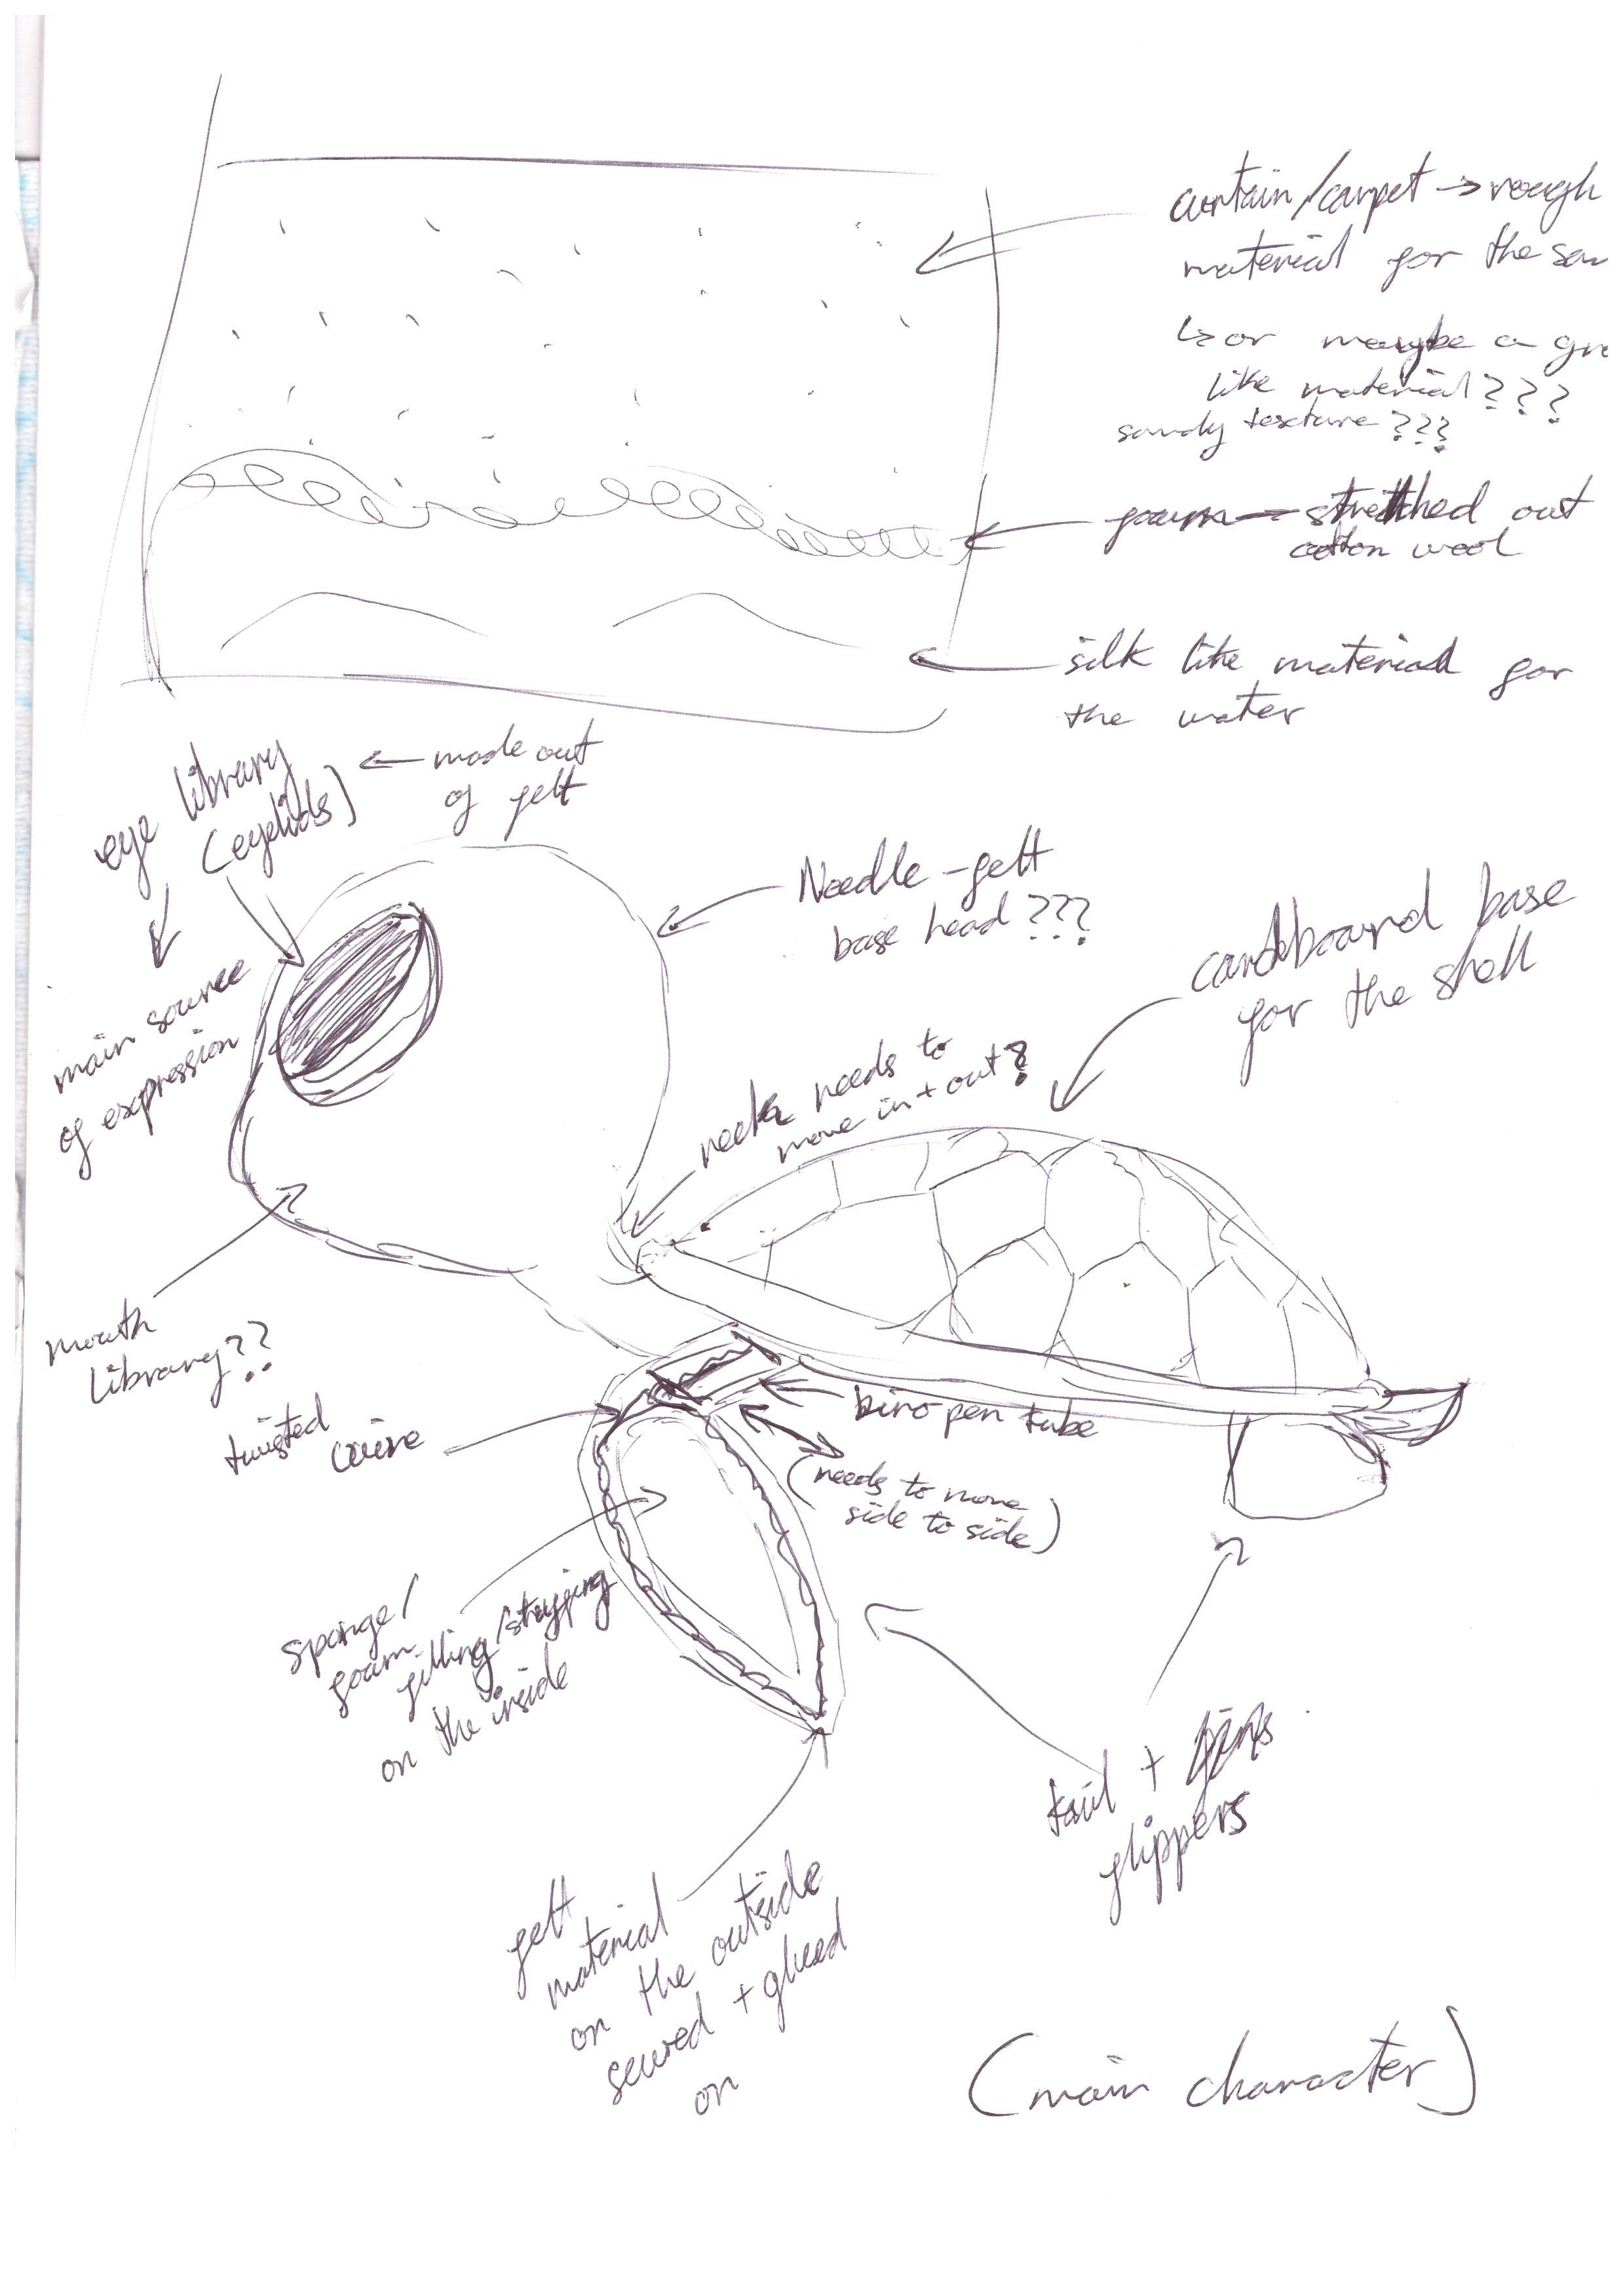 curtain/carpet → rough
material for the
↳ or maybe a
like material???
sandy texture???
foam — stretched out
cotton wool
silk like material for
the water
eye library
(eyelids)
← made out
of felt
main source
of expression
Needle-felt
base head???
cardboard base
for the shell
neck needs to
move in + out?
mouth
library??
twisted
wire
biro pen tube
(needs to move
side to side)
sponge/
foam
filling/stuffing
on the inside
tail +
flippers
felt
material
on the outside
sewed + glued
on
(main character)